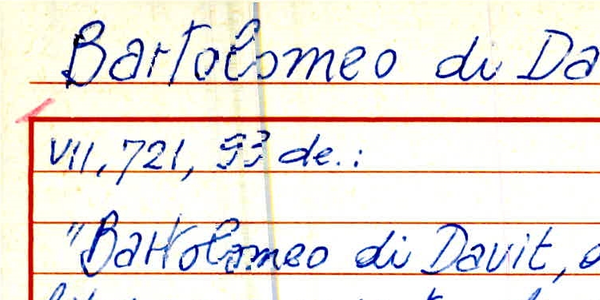 Bartolomeo di Da
VII, 721, 93 de.:
"Bartolomeo di Davit,